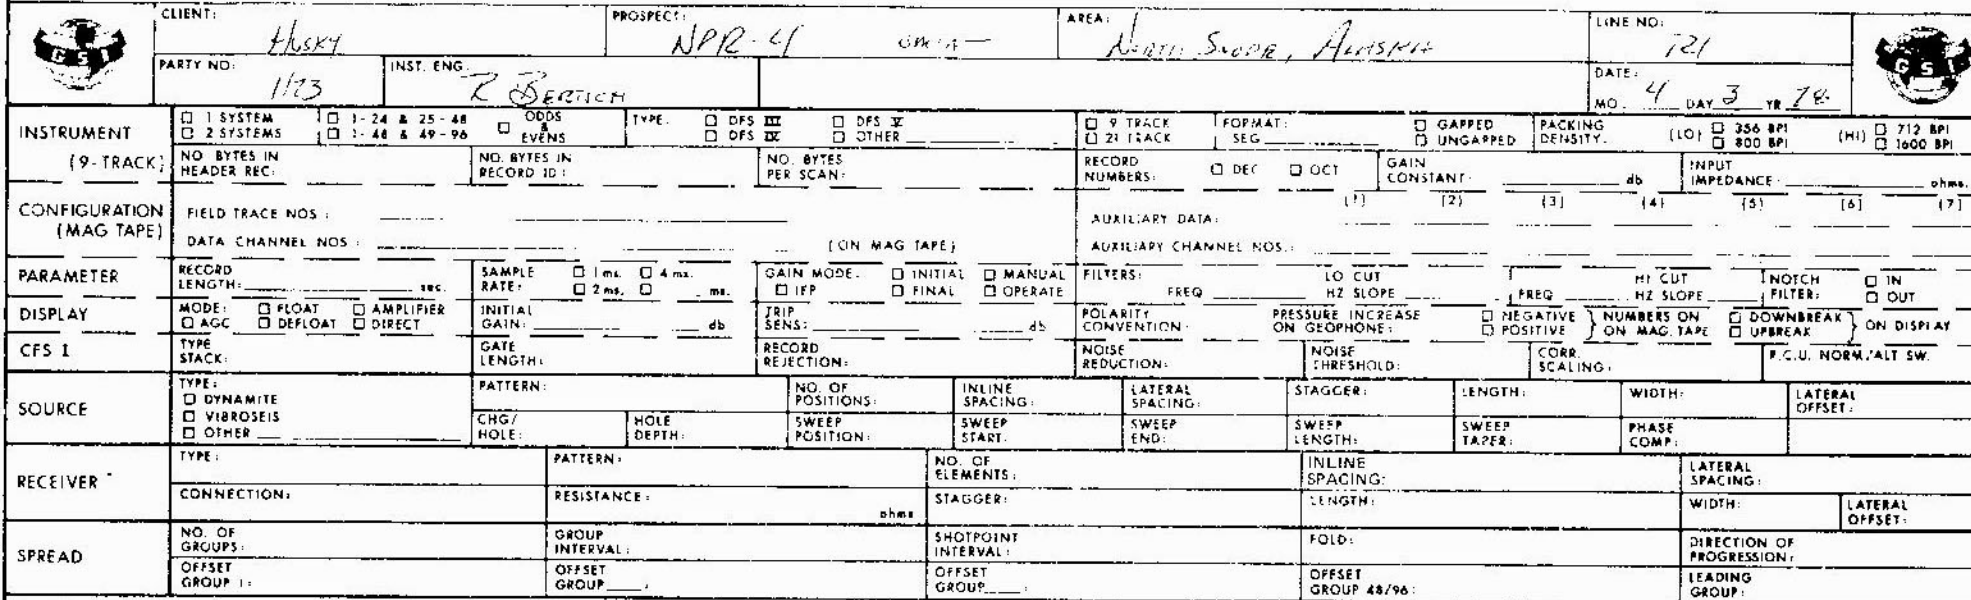 GSI
CLIENT: Husky PROSPECT: NPR-4 AREA: North Slope, Alaska LINE NO: 721
GSI
PARTY NO: 1123 INST. ENG. R BERTSCH DATE: MO. 4 DAY 3 YR 78
INSTRUMENT (9-TRACK)
1 SYSTEM 1-24 & 25-48 ODDS & EVENS TYPE. DFS III DFS V 9 TRACK FORMAT: GAPPED PACKING DENSITY. (LO) 356 BPI (HI) 712 BPI
2 SYSTEMS 1-48 & 49-96 DFS IV OTHER 21 TRACK SEG UNGAPPED 800 BPI 1600 BPI
NO BYTES IN HEADER REC: NO. BYTES IN RECORD ID: NO. BYTES PER SCAN: RECORD NUMBERS: DEC OCT GAIN CONSTANT: db INPUT IMPEDANCE: ohms.
CONFIGURATION (MAG TAPE)
FIELD TRACE NOS : AUXILIARY DATA: (1) (2) (3) (4) (5) (6) (7)
DATA CHANNEL NOS : (ON MAG TAPE) AUXILIARY CHANNEL NOS.:
PARAMETER RECORD LENGTH: sec. SAMPLE RATE: 1 ms. 4 ms. 2 ms. ms. GAIN MODE. INITIAL MANUAL IFP FINAL OPERATE FILTERS: FREQ LO CUT HZ SLOPE FREQ HI CUT HZ SLOPE NOTCH FILTER: IN OUT
DISPLAY MODE: FLOAT AMPLIFIER AGC DEFLOAT DIRECT INITIAL GAIN: db TRIP SENS: db POLARITY CONVENTION: PRESSURE INCREASE ON GEOPHONE: NEGATIVE POSITIVE NUMBERS ON ON MAG. TAPE DOWNBREAK UPBREAK ON DISPLAY
CFS I TYPE STACK: GATE LENGTH: RECORD REJECTION: NOISE REDUCTION: NOISE THRESHOLD: CORR. SCALING: F.C.U. NORM./ALT SW.
SOURCE TYPE: DYNAMITE VIBROSEIS OTHER
PATTERN: NO. OF POSITIONS: INLINE SPACING: LATERAL SPACING: STAGGER: LENGTH: WIDTH: LATERAL OFFSET:
CHG/HOLE: HOLE DEPTH: SWEEP POSITION: SWEEP START. SWEEP END: SWEEP LENGTH: SWEEP TAPER: PHASE COMP:
RECEIVER TYPE: PATTERN: NO. OF ELEMENTS: INLINE SPACING: LATERAL SPACING:
CONNECTION: RESISTANCE: ohms STAGGER: LENGTH: WIDTH: LATERAL OFFSET:
SPREAD NO. OF GROUPS: GROUP INTERVAL: SHOTPOINT INTERVAL: FOLD: DIRECTION OF PROGRESSION:
OFFSET GROUP 1: OFFSET GROUP : OFFSET GROUP : OFFSET GROUP 48/96: LEADING GROUP: